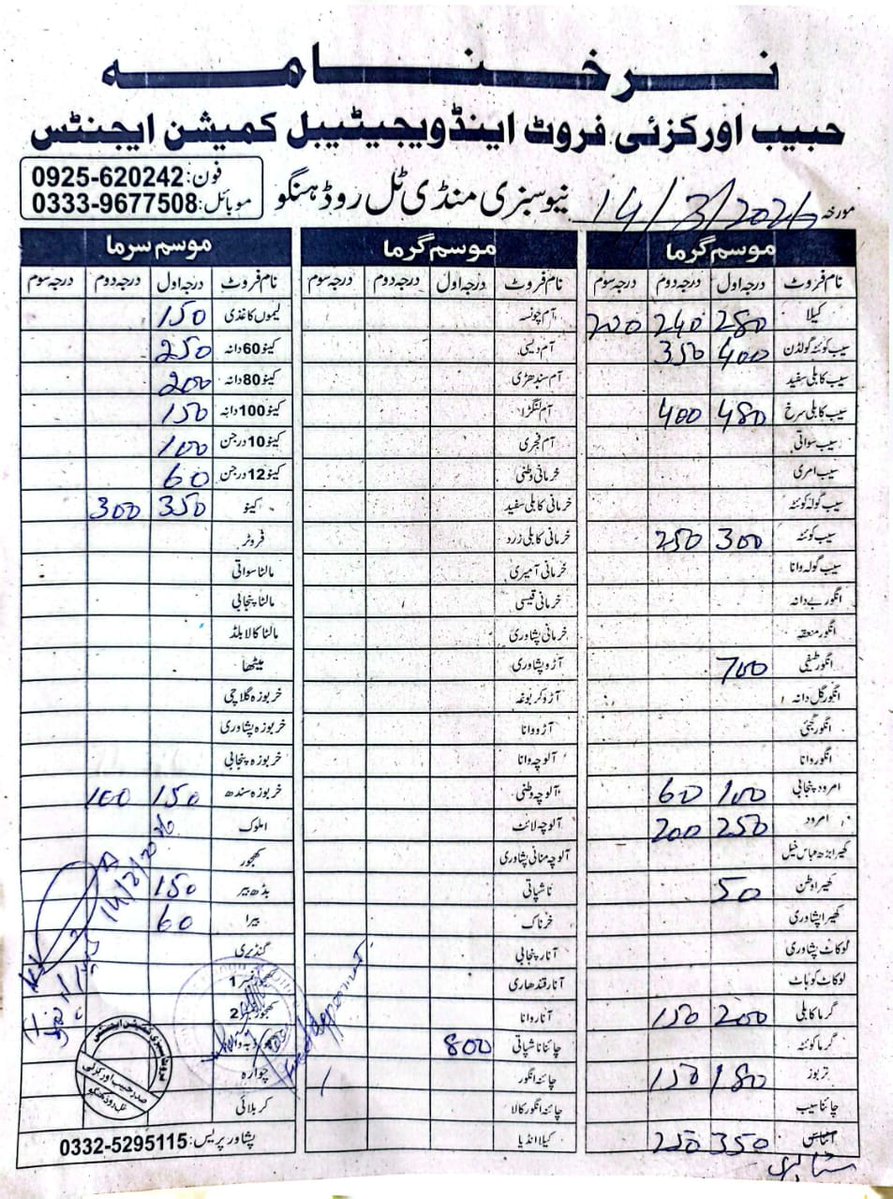 نرخنامہ
حبیب اورکزئی فروٹ اینڈ ویجیٹیبل کمیشن ایجنٹس
فون: 0925-620242
موبائل: 0333-9677508
نیو سبزی منڈی ٹل روڈ ہنگو
مورخہ 14/3/2026
موسم گرما
نام فروٹ درجہ اول درجہ دوم درجہ سوم
کیلا 280 240 200
سیب کوئٹہ گولڈن 400 350
سیب کابلی سفید
سیب کابلی سرخ 480 400
سیب سواتی
سیب امری
سیب گولہ کوئٹہ
سیب کوئٹہ 300 250
سیب گولہ وانا
انگور بے دانہ
انگور منقہ
انگور ٹیفی 700
انگور گل دانہ
انگور گجئی
انگور وانا
امرود پنجابی 100 60
امرود 250 200
کھیرا بڑھ عباس خیل
کھیرا وطن 50
کھیرا پشاوری
لوکاٹ پشاوری
لوکاٹ کوہاٹ
گرما کابلی 200 150
گرما کوئٹہ
تربوز 180 150
چائنا سیب
اناناس 350 250
موسم گرما
نام فروٹ درجہ اول درجہ دوم درجہ سوم
آم چونسہ
آم دیسی
آم سندھڑی
آم لنگڑا
آم فجری
خرمانی وطنی
خرمانی کابلی سفید
خرمانی کابلی زرد
خرمانی آمیری
خرمانی قیسی
خرمانی پشاوری
آڑو پشاوری
آڑو کربوغہ
آڑو وانا
آلوچہ وانا
آلوچہ وطنی
آلوچہ لائٹ
آلوچہ منانی پشاوری
ناشپاتی
خرناک
آنار پنجابی
آنار قندھاری
آنار وانا
چائنا ناشپاتی 800
چائنہ انگور
چائنہ انگور کالا
کیلا انڈیا
موسم سرما
نام فروٹ درجہ اول درجہ دوم درجہ سوم
لیموں کاغذی 150
کینو 60 دانہ 250
کینو 80 دانہ 200
کینو 100 دانہ 150
کینو 10 درجن 100
کینو 12 درجن 60
کینو 350 300
فروٹر
مالٹا سواتی
مالٹا پنجابی
مالٹا کالا بلڈ
میٹھا
خربوزہ گلاچی
خربوزہ پشاوری
خربوزہ پنجابی
خربوزہ سندھ 150 100
املوک
کھجور
بڈھ بیر 150
بیرا 60
گنڈیری
کھجور نمبر 1
کھجور نمبر 2
چوارہ
کربلائی
پشاور پریس: 0332-5295115
14/3/2026
Food Department
فروٹ اینڈ سبزی کمیشن ایجنٹس
صدر حبیب اورکزئی
ٹل روڈ ہنگو